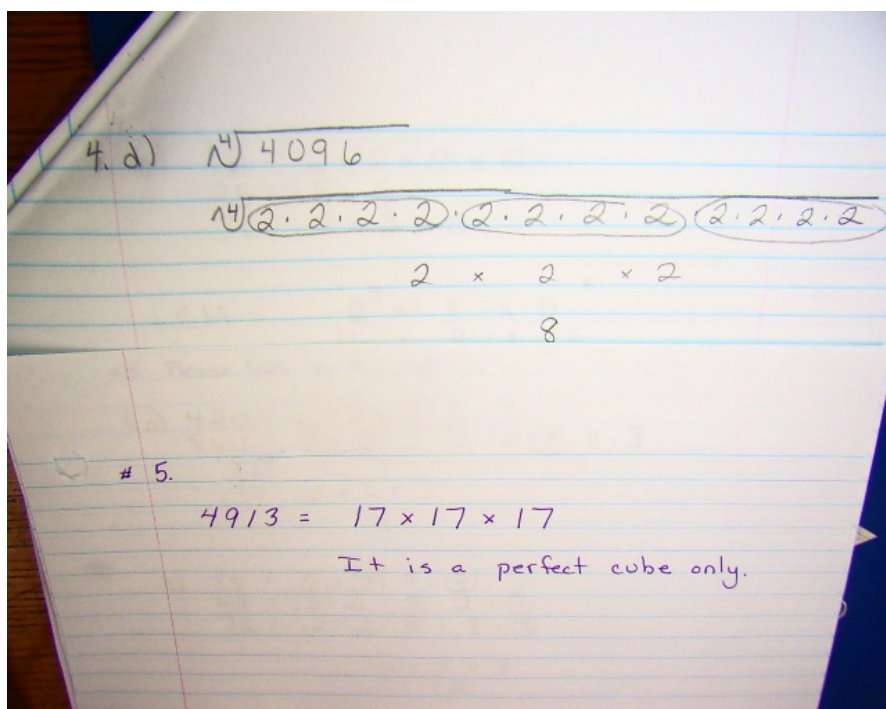 4. d) ∜4096
∜2 · 2 · 2 · 2 · 2 · 2 · 2 · 2 2 · 2 · 2 · 2
2 × 2 × 2
8
# 5.
4913 = 17 × 17 × 17
It is a perfect cube only.